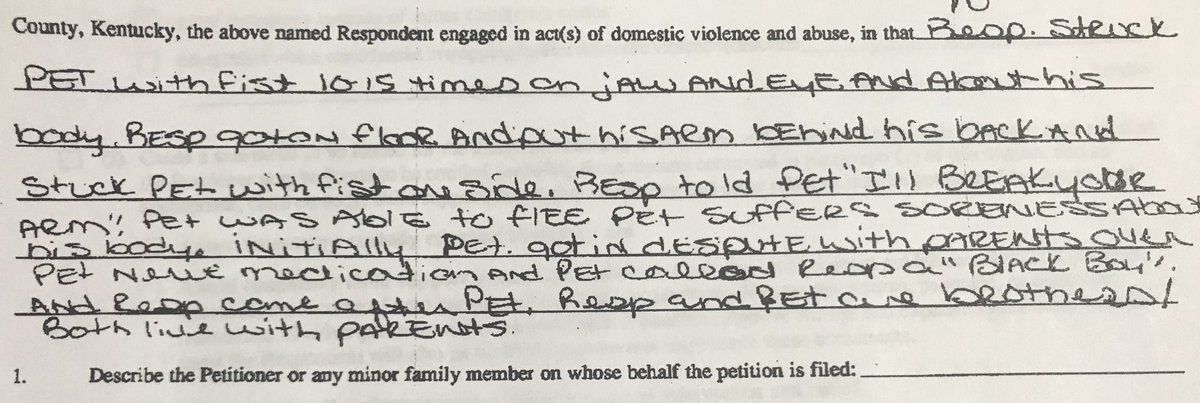 County, Kentucky, the above named Respondent engaged in act(s) of domestic violence and abuse, in that Resp. Struck
PET with fist 10-15 times on jaw AND EyE AND About his
body. RESP got on flooR AND put his ARm bEhiNd his bACK ANd
Stuck PEt with fist on side. REsp told PEt "I'll BREAK yOUR
ARM". PEt WAS AblE to flEE PEt SuffERS SORENESS About
his body. INiTiAlly PEt. got iN dESputE with pARENtS OVER
PEt NEW medication AND PEt called Resp a "BlACK Boy".
AND Resp came after PEt. Resp and PEt are bROthers/
Both live with PARENtS.
1. Describe the Petitioner or any minor family member on whose behalf the petition is filed: